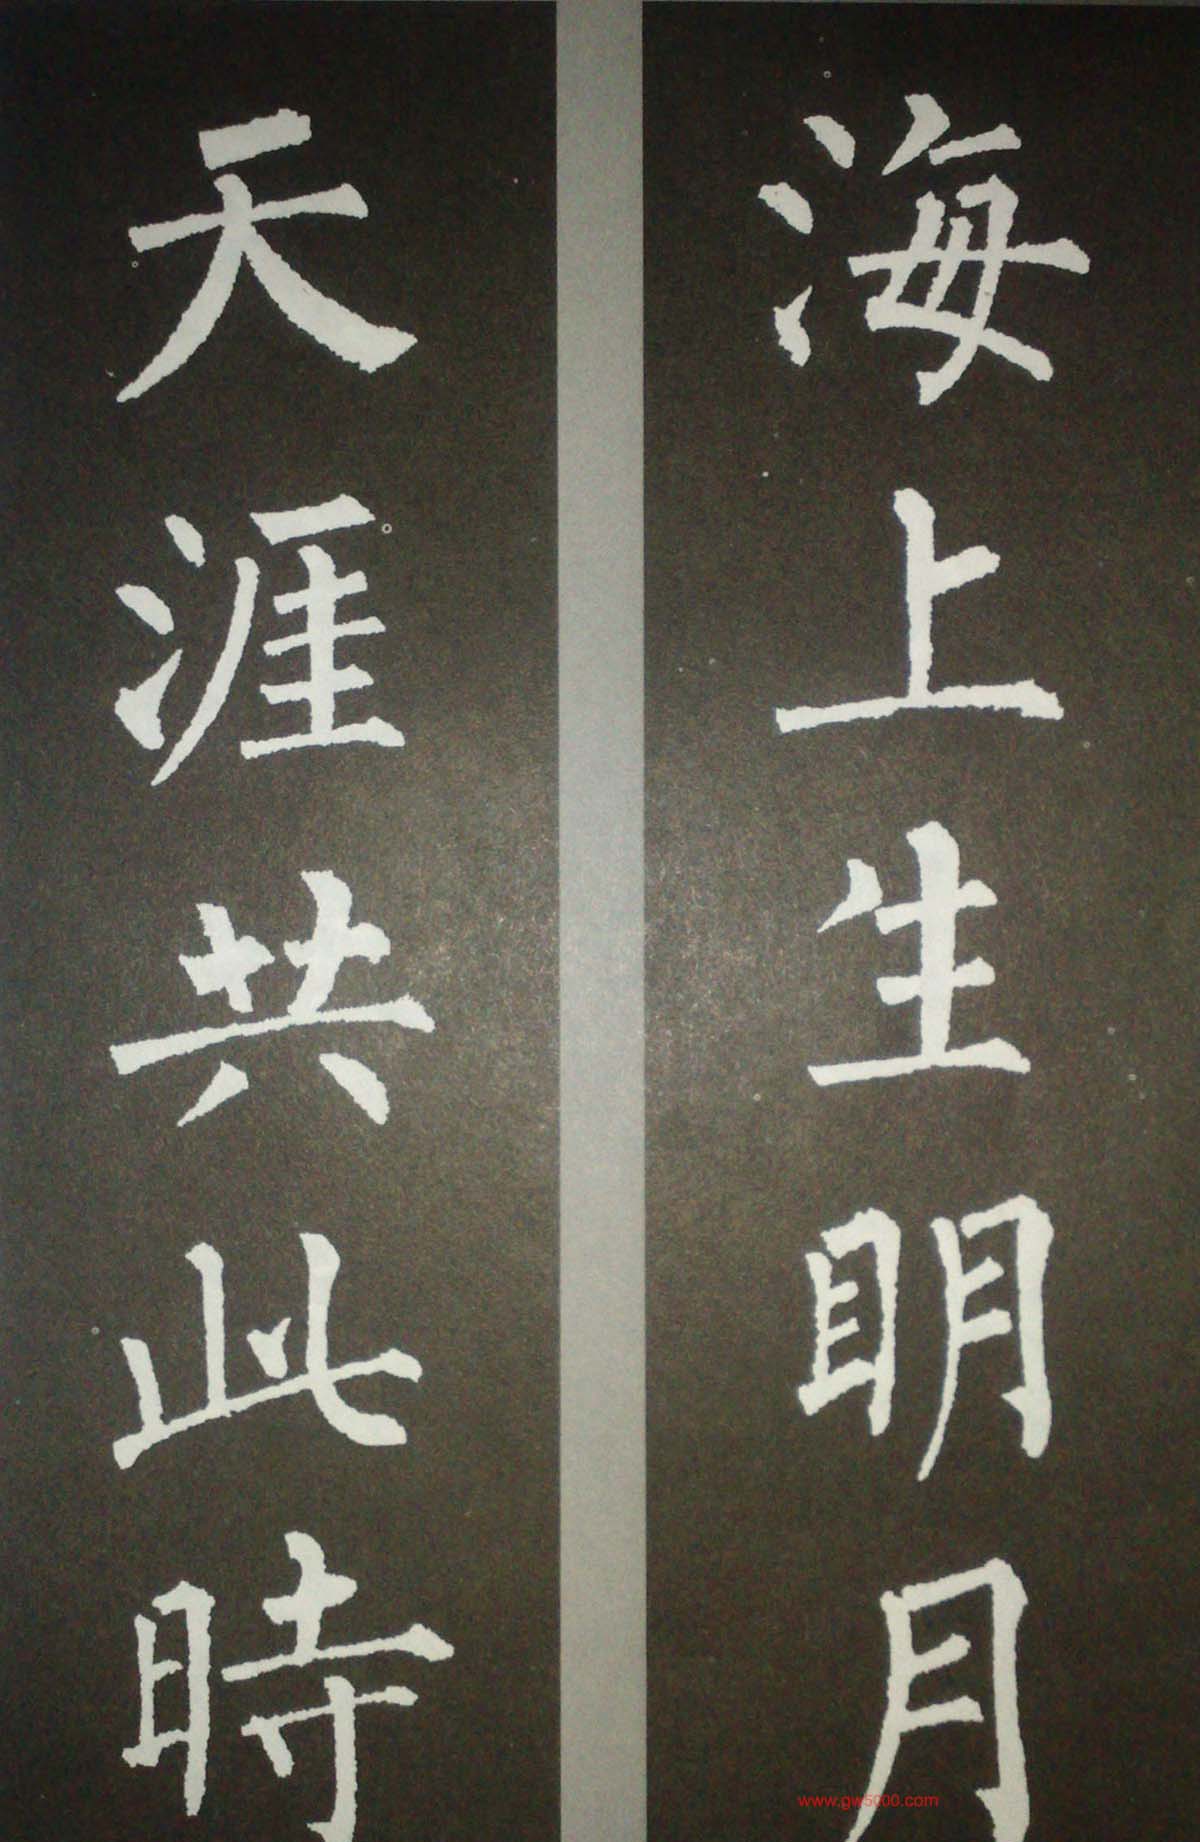 海上生明月
天涯共此時
www.gw5000.com